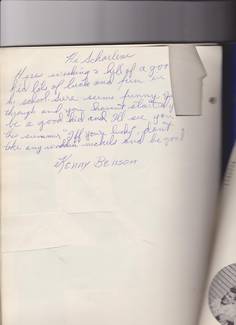 Hi Scharlene
Here wishing a hell of a good
kid lots of luck and fun in
school sure seems funny
through and you haven't started
be a good kid and I'll see you
the summer "If your lucky" don't
take any wooden nickels and be good
Kenny Benson